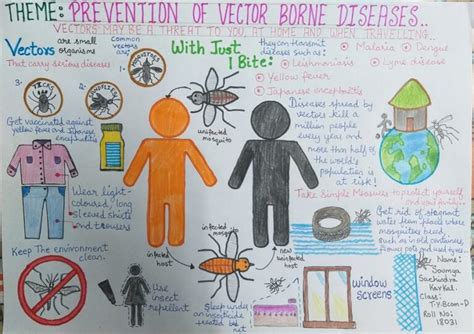 THEME: PREVENTION OF VECTOR BORNE DISEASES..
VECTORS MAY BE A THREAT TO YOU, AT HOME AND WHEN TRAVELLING..
Vectors are small
organisms
That carry serious diseases
Common
vectors are:
1.
MOSQUITOES
2.
SANDFLIES
3.
TICKS
With Just
1 Bite:
they can transmit
diseases such as
Malaria
Dengue
Leishmaniosis
Lyme disease
Yellow fever
Japanese encephalitis
uninfected
mosquito
Diseases spread by
vectors kill a
million people
every year and
more than half of
the world's
population is
at risk!
Get vaccinated against
yellow fever and Japanese
encephalitis
Wear light-
coloured, long
sleeved shirts
and trousers
Take Simple Measures to protect yourself
and your family!
Get rid of stagnant
water from places where
mosquitoes breed,
such as in old containers,
flower pots and used tyres.
infected
host
infected
mosquito
new
uninfected
host
Keep The environment
clean.
Use
insect
repellent
Sleep under
an insecticide
treated bed
net
window
screens
Name:
Soumya
Sachindra
Karkal.
Class:
T.Y.Bcom-D
Roll No:
18031